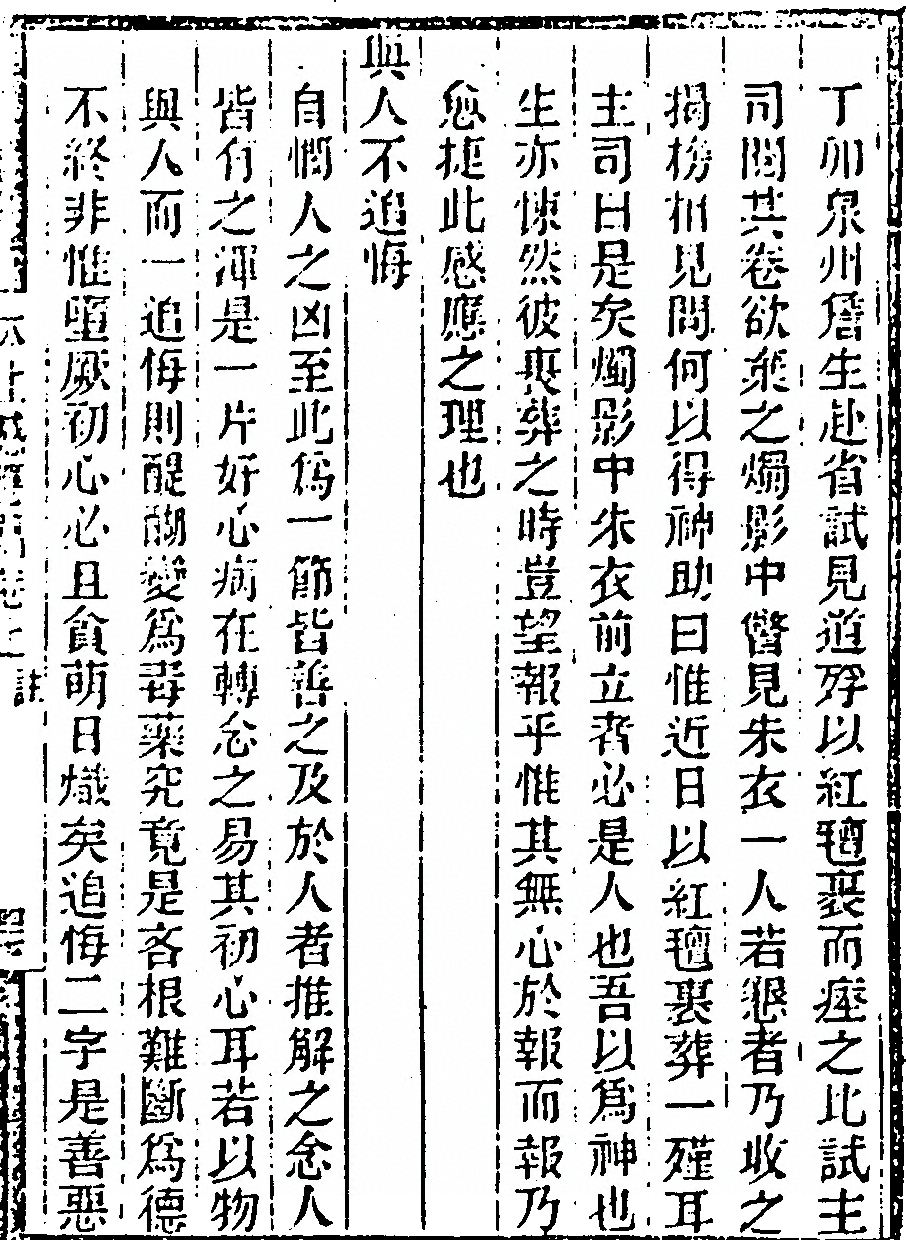 丁卯泉州詹生赴省試見道殍以紅氊裹而瘞之比試主
司閱其卷欲棄之燭影中瞥見朱衣一人若懇者乃收之
揭榜相見問何以得神助曰惟近日以紅氊裹葬一殣耳
主司曰是矣燭影中朱衣前立者必是人也吾以爲神也
生亦悚然彼喪葬之時豈望報乎惟其無心於報而報乃
愈捷此感應之理也
與人不追悔
自憫人之凶至此爲一節皆善之及於人者推解之念人
皆有之渾是一片好心病在轉念之易其初心耳若以物
與人而一追悔則醍醐變爲毒藥究竟是吝根難斷爲德
不終非惟墮厥初心必且貪萌日熾矣追悔二字是善惡
註